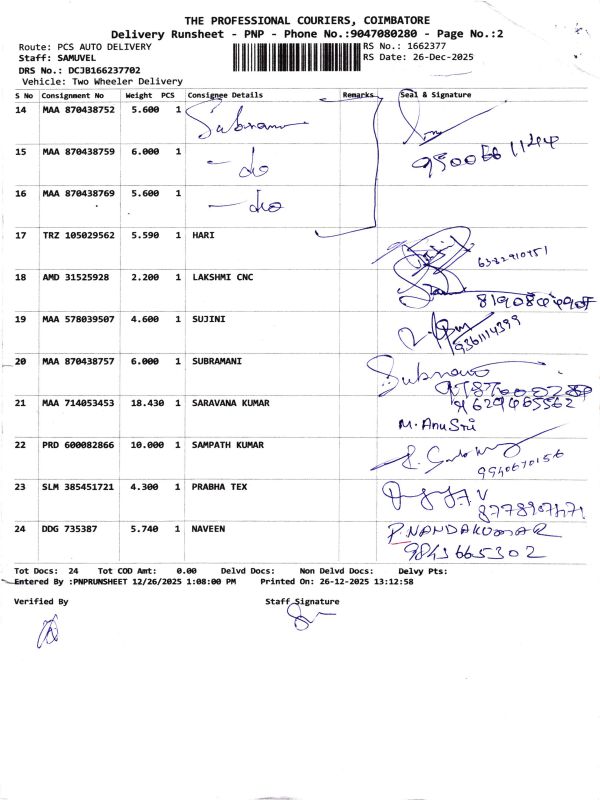 THE PROFESSIONAL COURIERS, COIMBATORE
Delivery Runsheet - PNP - Phone No.:9047080280 - Page No.:2
Route: PCS AUTO DELIVERY
RS No.: 1662377
Staff: SAMUVEL
RS Date: 26-Dec-2025
DRS No.: DCJB166237702
Vehicle: Two Wheeler Delivery
S No Consignment No Weight PCS Consignee Details Remarks Seal & Signature
14 MAA 870438752 5.600 1
15 MAA 870438759 6.000 1 - do
16 MAA 870438769 5.600 1 - do
17 TRZ 105029562 5.590 1 HARI
18 AMD 31525928 2.200 1 LAKSHMI CNC
19 MAA 578039507 4.600 1 SUJINI
9361114399
20 MAA 870438757 6.000 1 SUBRAMANI
21 MAA 714053453 18.430 1 SARAVANA KUMAR
M. Anu Sri
22 PRD 600082866 10.000 1 SAMPATH KUMAR
9940670156
23 SLM 385451721 4.300 1 PRABHA TEX
24 DDG 735387 5.740 1 NAVEEN P. NANDAKUMAR
9843665302
Tot Docs: 24 Tot COD Amt: 0.00 Delvd Docs: Non Delvd Docs: Delvy Pts:
Entered By :PNPRUNSHEET 12/26/2025 1:08:00 PM Printed On: 26-12-2025 13:12:58
Verified By Staff Signature